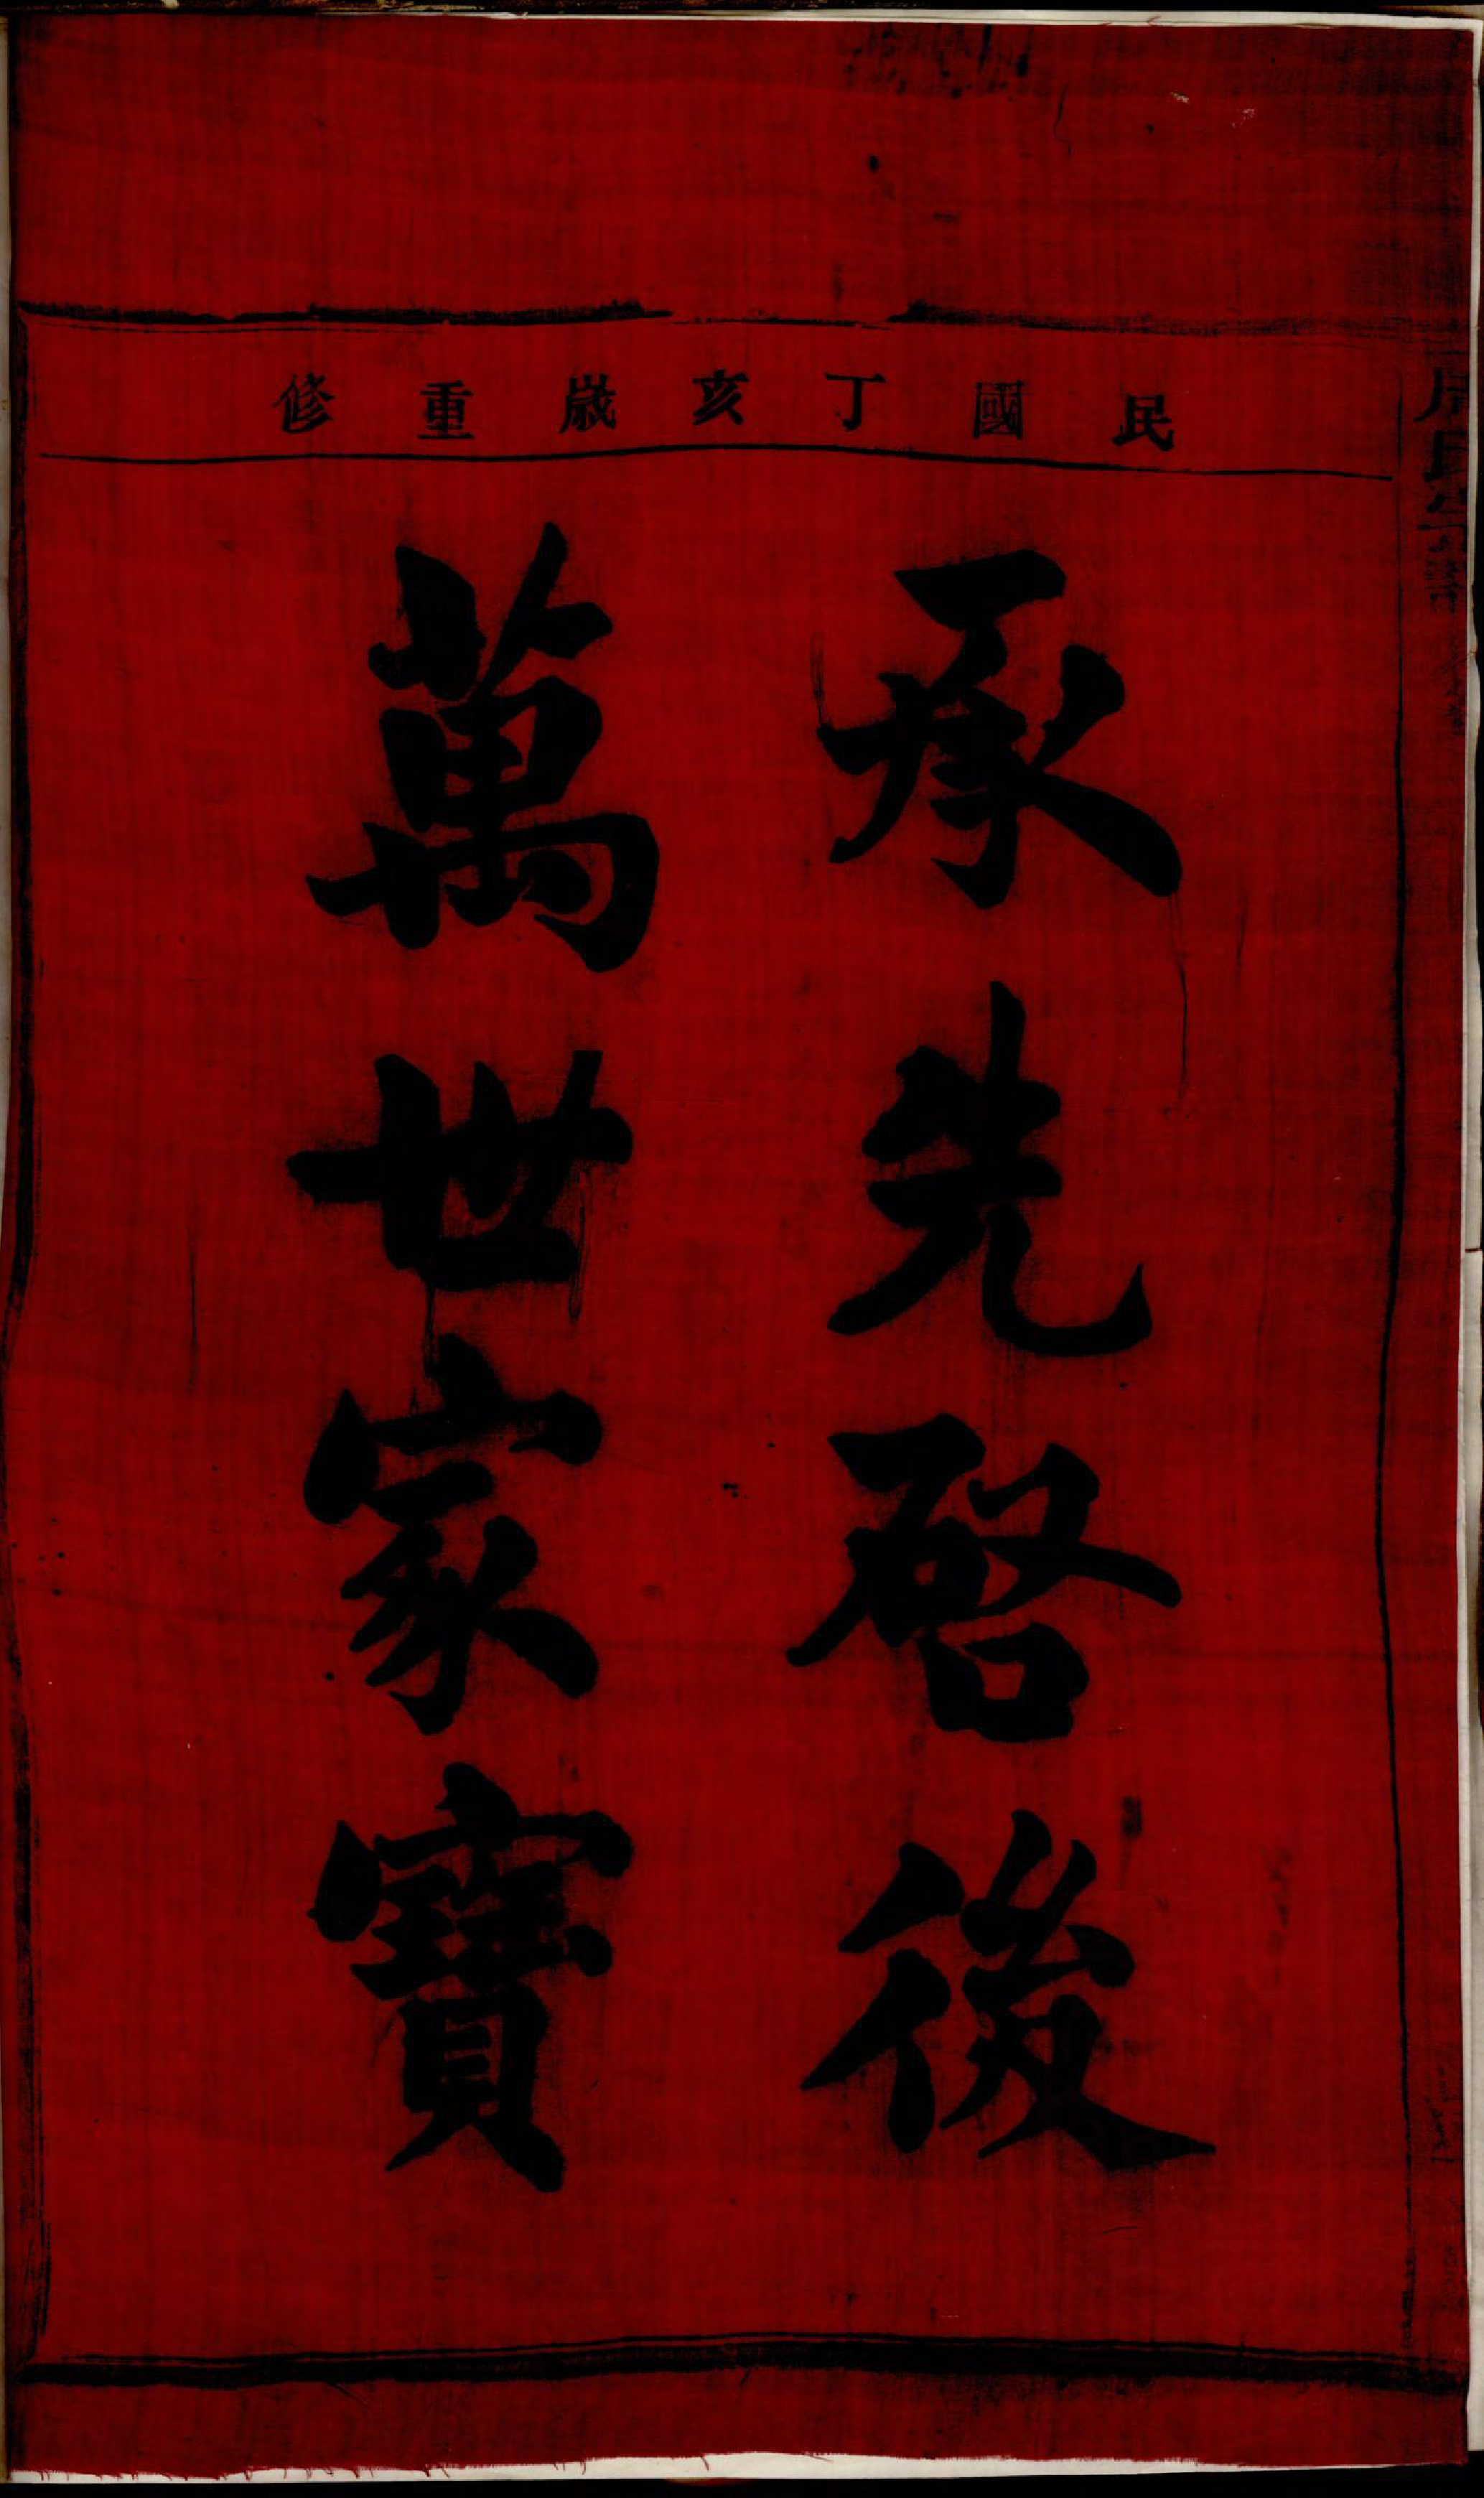 民國丁亥歲重修
承先啓後
萬世家寶